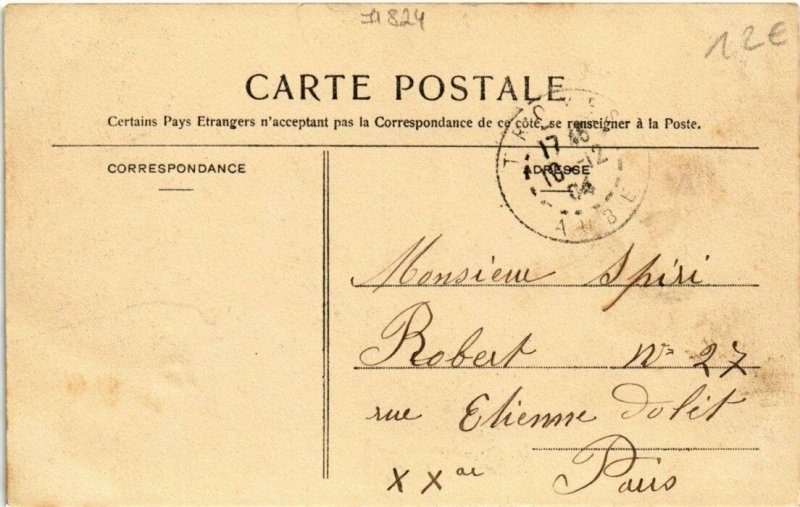 JA824
12€
CARTE POSTALE
Certains Pays Etrangers n'acceptent pas la Correspondance de ce côté, se renseigner à la Poste.
CORRESPONDANCE
ADRESSE
TROYES
17 45
10 - 12
04
AUBE
Monsieur Spiri
Robert Nº 27
rue Etienne Dolét
XXme Paris